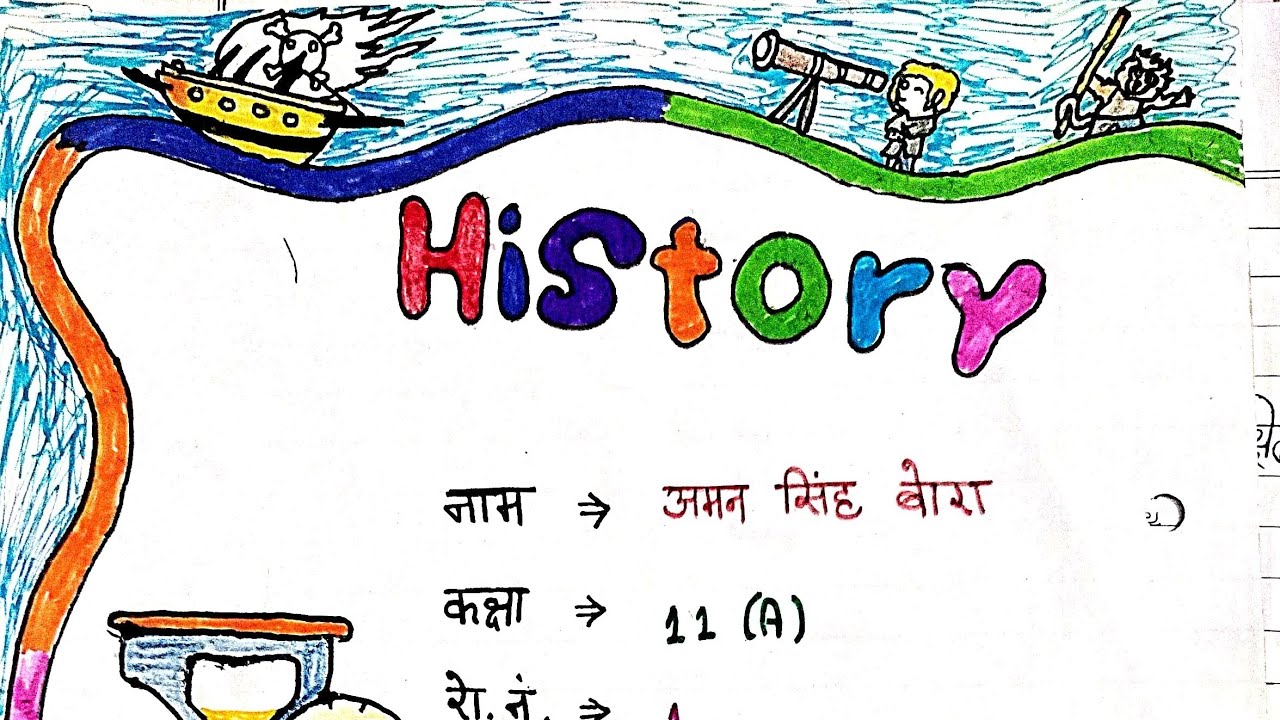 History
नाम ⇒ अमन सिंह बोरा
कक्षा ⇒ 11 (A)
रो. नं. ⇒